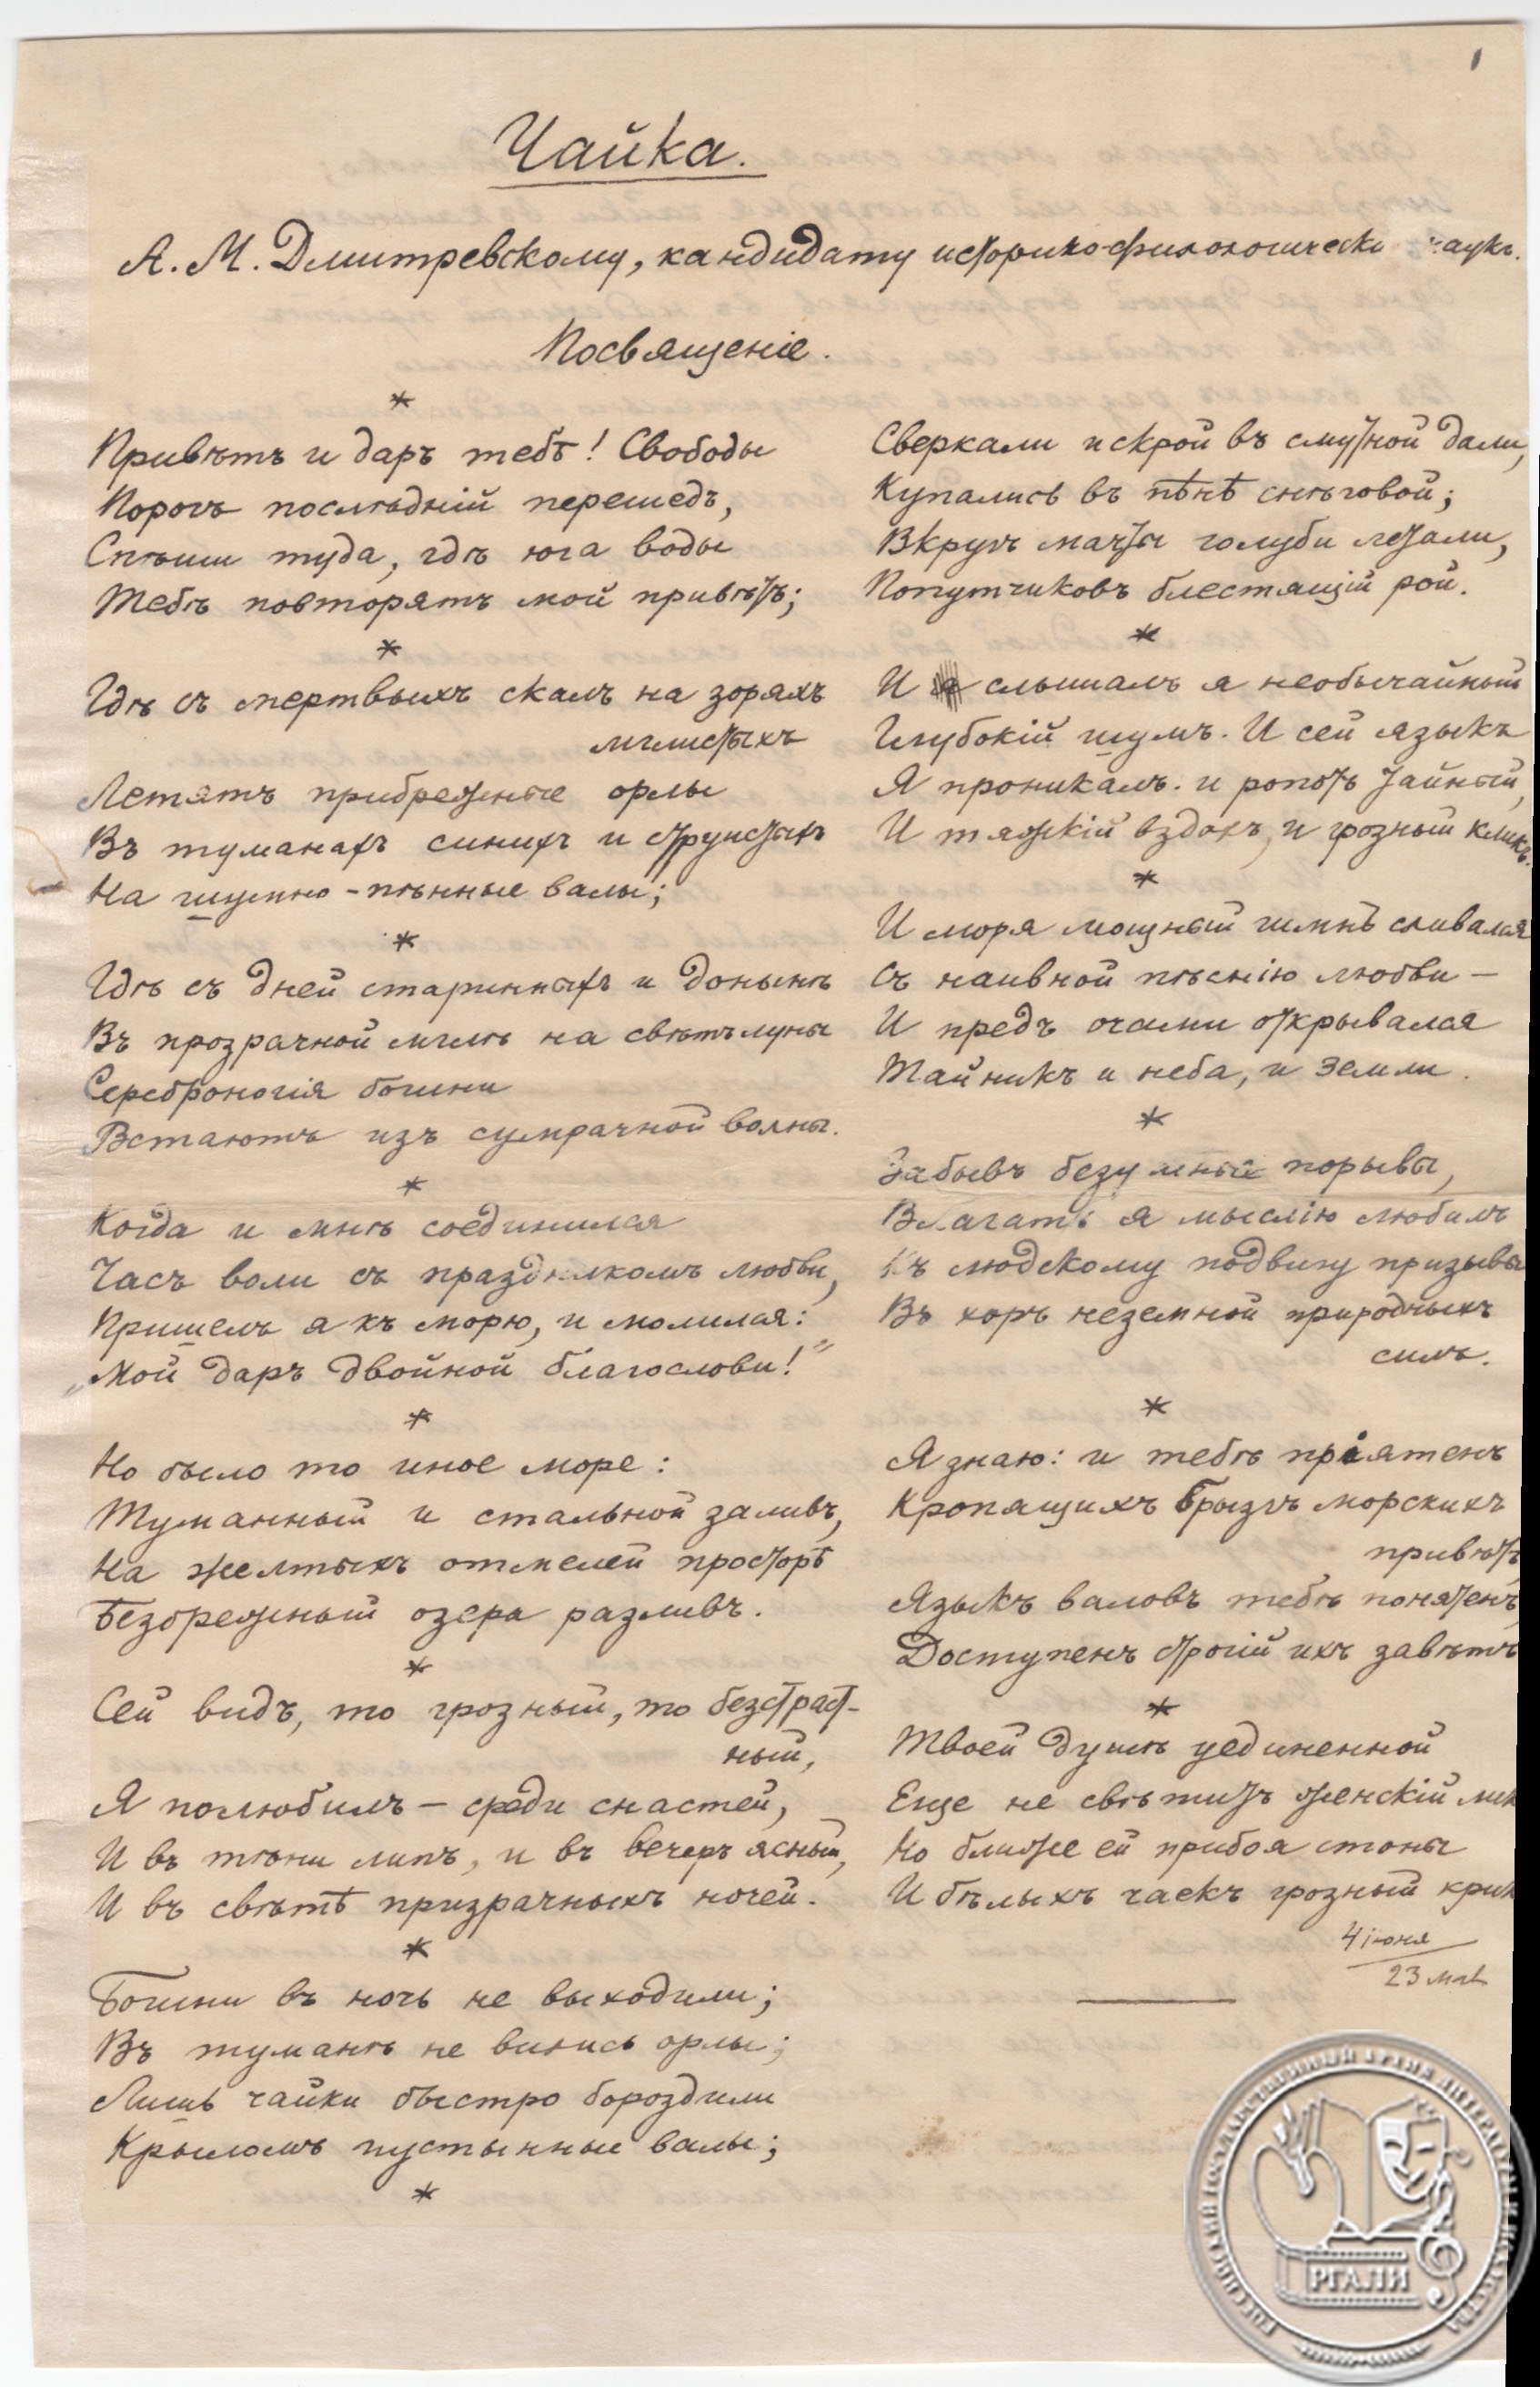 1
Чайка.
А. М. Дмитревскому, кандидату историко-филологически наукъ.
Посвященіе.
*
Привѣтъ и даръ тебѣ! Свободы
Порогъ послѣдній перешедъ,
Спѣши туда, гдѣ юга воды
Тебѣ повторятъ мой привѣтъ;
*
Гдѣ съ мертвыхъ скалъ на зоряхъ
мглистыхъ
Летятъ прибрежные орлы
Въ туманахъ синихъ и струистыхъ
На шумно-пѣнные валы;
*
Гдѣ съ дней старинныхъ и донынѣ
Въ прозрачной мглѣ на свѣтъ луны
Сереброногія богини
Встаютъ изъ сумрачной волны.
*
Когда и мнѣ соединился
Часъ воли съ праздникомъ любви,
Пришелъ я къ морю, и молился:
„Мой даръ двойной благослови!"
*
Но было то иное море:
Туманный и стальной заливъ,
На желтыхъ отмелей просторѣ
Безбрежный озера разливъ.
*
Сей видъ, то грозный, то безстраст-
ный,
Я полюбилъ — среди снастей,
И въ тѣни липъ, и въ вечеръ ясный,
И въ свѣтѣ призрачныхъ ночей.
*
Богини въ ночь не выходили;
Въ туманѣ не вились орлы;
Лишь чайки быстро бороздили
Крыломъ пустынные валы;
*
Сверкали искрой въ смутной дали,
Купались въ пѣнѣ снѣговой;
Вкругъ мачты голуби летали,
Попутчиковъ блестящій рой.
*
И слышалъ я необычайный
Глубокій шумъ. И сей языкъ
Я проникалъ. и ропотъ тайный,
И тяжкій вздохъ, и грозный кликъ.
*
И моря мощный гимнъ сливался
Съ наивной пѣснію любви —
И предъ очами открывался
Тайникъ и неба, и земли.
*
Забывъ безумные порывы,
Влагать я мыслію любилъ
Къ людскому подвигу призывы
Въ хоръ неземной природныхъ
силъ.
*
Я знаю: и тебѣ пріятенъ
Кропящихъ брызгъ морскихъ
привѣтъ,
Языкъ валовъ тебѣ понятенъ,
Доступенъ строгій ихъ завѣтъ
*
Твоей душѣ уединенной
Еще не свѣтитъ женскій лик
Но ближе ей прибоя стоны
И бѣлыхъ чаекъ грозный крик
4 іюня
23 мая
РОССИЙСКИЙ ГОСУДАРСТВЕННЫЙ АРХИВ ЛИТЕРАТУРЫ И ИСКУССТВА
РГАЛИ